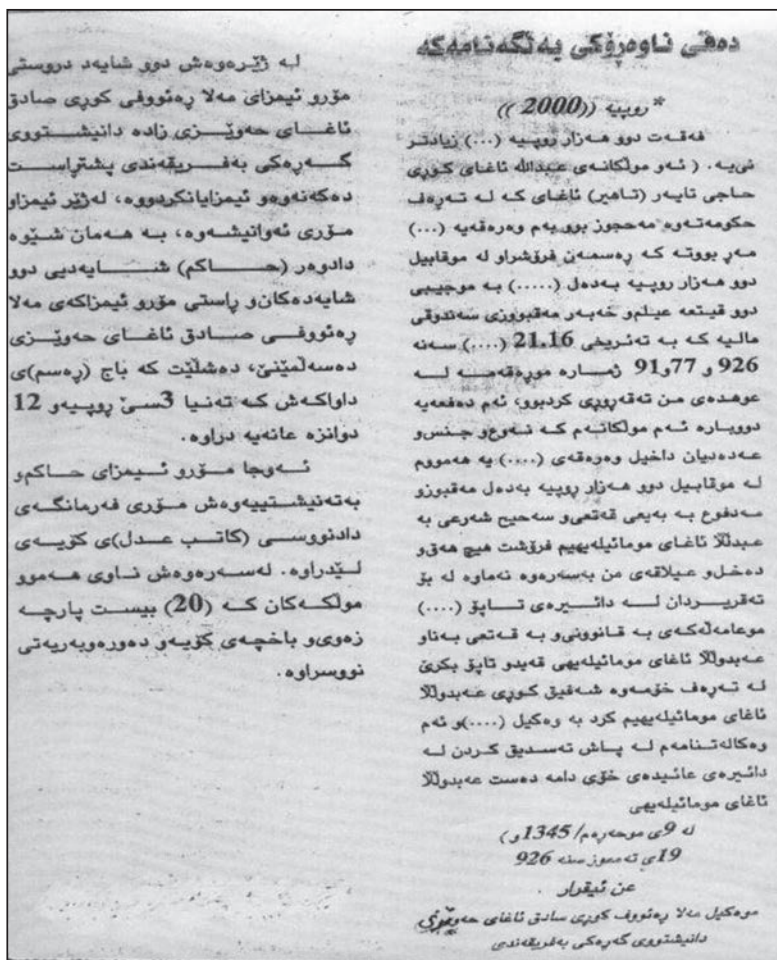 دەقی ناوەڕۆکی بەڵگەنامەکە
*روپیە ((2000))
فەقەت دوو هەزار روپیە (...) زیادتر
نی‌یە. ( ئەو موڵکانەی عبداللە ئاغای کوری
حاجی تایەر (تاهیر) ئاغای کە لە تەرەف
حکومەتەوە مەحجوز بوو بەم وەرەقەیە (...)
مەڕ بووتە کە ڕەسمەن فرۆشراو لە موقابیل
دوو هەزار روپیە بەدەل (.....) بە موجیبی
دوو قیتعە عیلم و خەبەر مەقبووزی سەندوقی
مالیە کە بە تەئریخی 21.16 (....) سەنە
926 و 77و91 ژمارە مورەقەمە لە
عوهدەی من تەقەڕوری کردبوو، ئەم دەفعەیە
دووبارە ئەم موڵکانەم کە نەوع و جنس و
عەدەدیان داخیل وەرەقەی (....) یە هەمووم
لە موقابیل دوو هەزار ڕوپیە بەدەل مەقبوزو
مەدفوع بە بەیعی قەتعی و سەحیح شەرعی بە
عبدللا ئاغای مومائیلەیهیم فرۆشت هیچ هەق و
دەخل و عیلاقەی من بەسەرەوە نەماوە لە بۆ
تەقریردان لە دائیرەی تاپۆ (....)
موعامەلەکەی بە قانوونی و بە قەتعی بەناو
عەبدوڵلا ئاغای مومائیلەیهی قەیدو تاپۆ بکرێ
لە تەرەف خۆمەوە شەفیق کوری عەبدوڵلا
ئاغای مومائیلەیهیم کرد بە وەکیل (....)و ئەم
وەکالەتنامەم لە پاش تەسدیق کردن لە
دائیرەی عائیدەی خۆی دامە دەست عەبدوڵلا
ئاغای مومائیلەیهی
لە 9ی موحەرەم/ 1345 و)
19ی تەمموز سنە 926
عن ئیقرار .
موەکیل مەلا ڕەئووف کوری سادق ئاغای حەوێزی
دانیشتووی گەرەکی بەفریقەندی
لە ژێرەوەش دوو شایەد دروستی
مۆرو ئیمزای مەلا ڕەئووفی کوری صادق
ئاغای حەوێزی زادە دانیشتووی
گەرەکی بەفریقەندی پشتراست
دەکەنەوەو ئیمزایانکردووە، لەژێر ئیمزاو
مۆری ئەوانیشەوە، بە هەمان شێوە
دادوەر (حاکم) شایەدیی دوو
شایەدەکان و ڕاستی مۆرو ئیمزاکەی مەلا
ڕەئووفی صادق ئاغای حەوێزی
دەسەلمێنێ، دەشڵێت کە باج (ڕەسم)ی
داواکەش کە تەنیا 3سێ روپیەو 12
دوانزە عانەیە دراوە.
ئەوجا مۆرو ئیمزای حاکم و
بەتەنیشتییەوەش مۆری فەرمانگەی
دادنووسی (کاتب عدل)ی کۆیەی
لێدراوە. لەسەرەوەش ناوی هەموو
موڵکەکان کە (20) بیست پارچە
زەوی و باخچەی کۆیەو دەوروبەریەتی
نووسراوە.